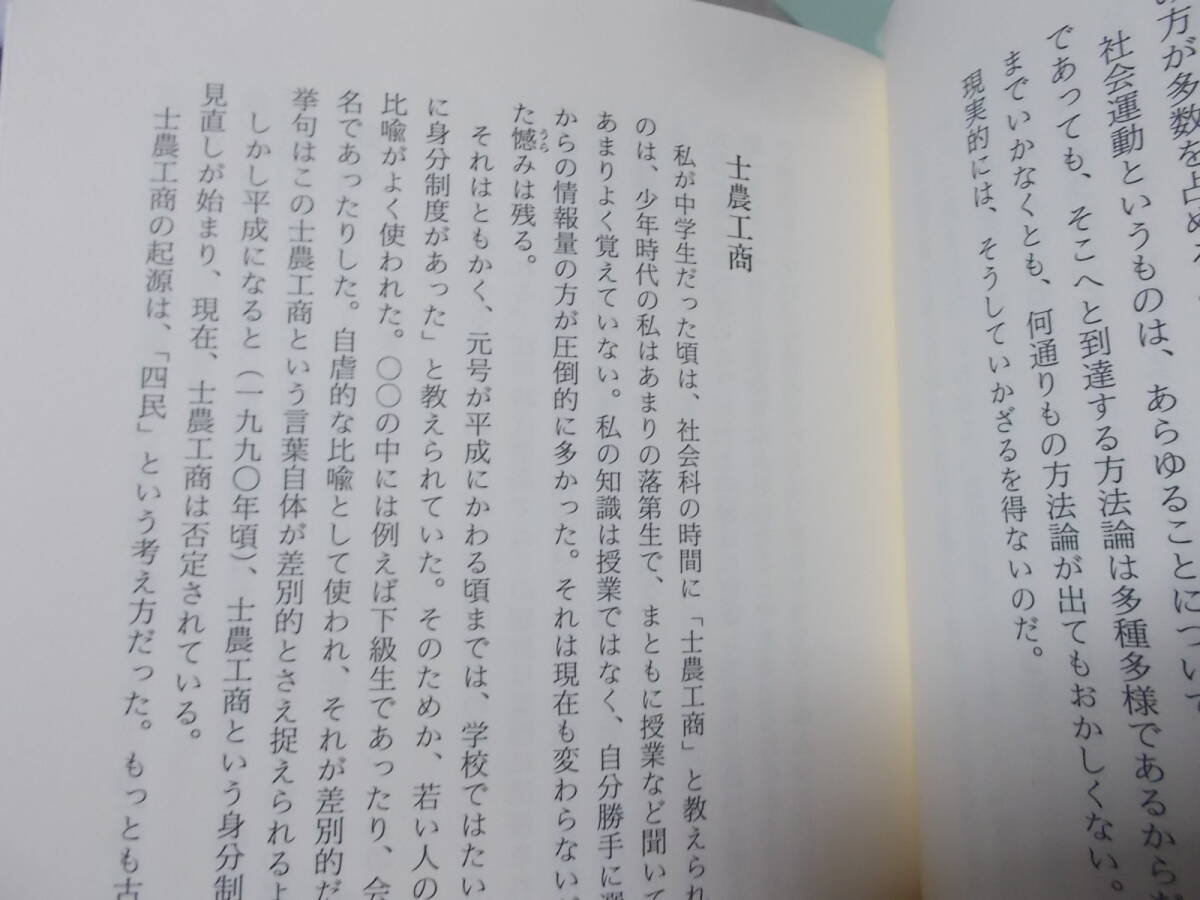 方が多数を占め
社会運動というものは、あらゆることについて
であっても、そこへと到達する方法論は多種多様であるから
までいかなくとも、何通りもの方法論が出てもおかしくない。
現実的には、そうしていかざるを得ないのだ。
士農工商
私が中学生だった頃は、社会科の時間に「士農工商」と教えられ
のは、少年時代の私はあまりの落第生で、まともに授業など聞いて
あまりよく覚えていない。私の知識は授業ではなく、自分勝手に選
からの情報量の方が圧倒的に多かった。それは現在も変わらない
た憾うらみは残る。
それはともかく、元号が平成にかわる頃までは、学校ではたい
に身分制度があった」と教えられていた。そのためか、若い人の
比喩がよく使われた。〇〇の中には例えば下級生であったり、会
名であったりした。自虐的な比喩として使われ、それが差別的だ
挙句はこの士農工商という言葉自体が差別的とさえ捉えられるよ
しかし平成になると（一九九〇年頃）、士農工商という身分制
見直しが始まり、現在、士農工商は否定されている。
士農工商の起源は、「四民」という考え方だった。もっとも古